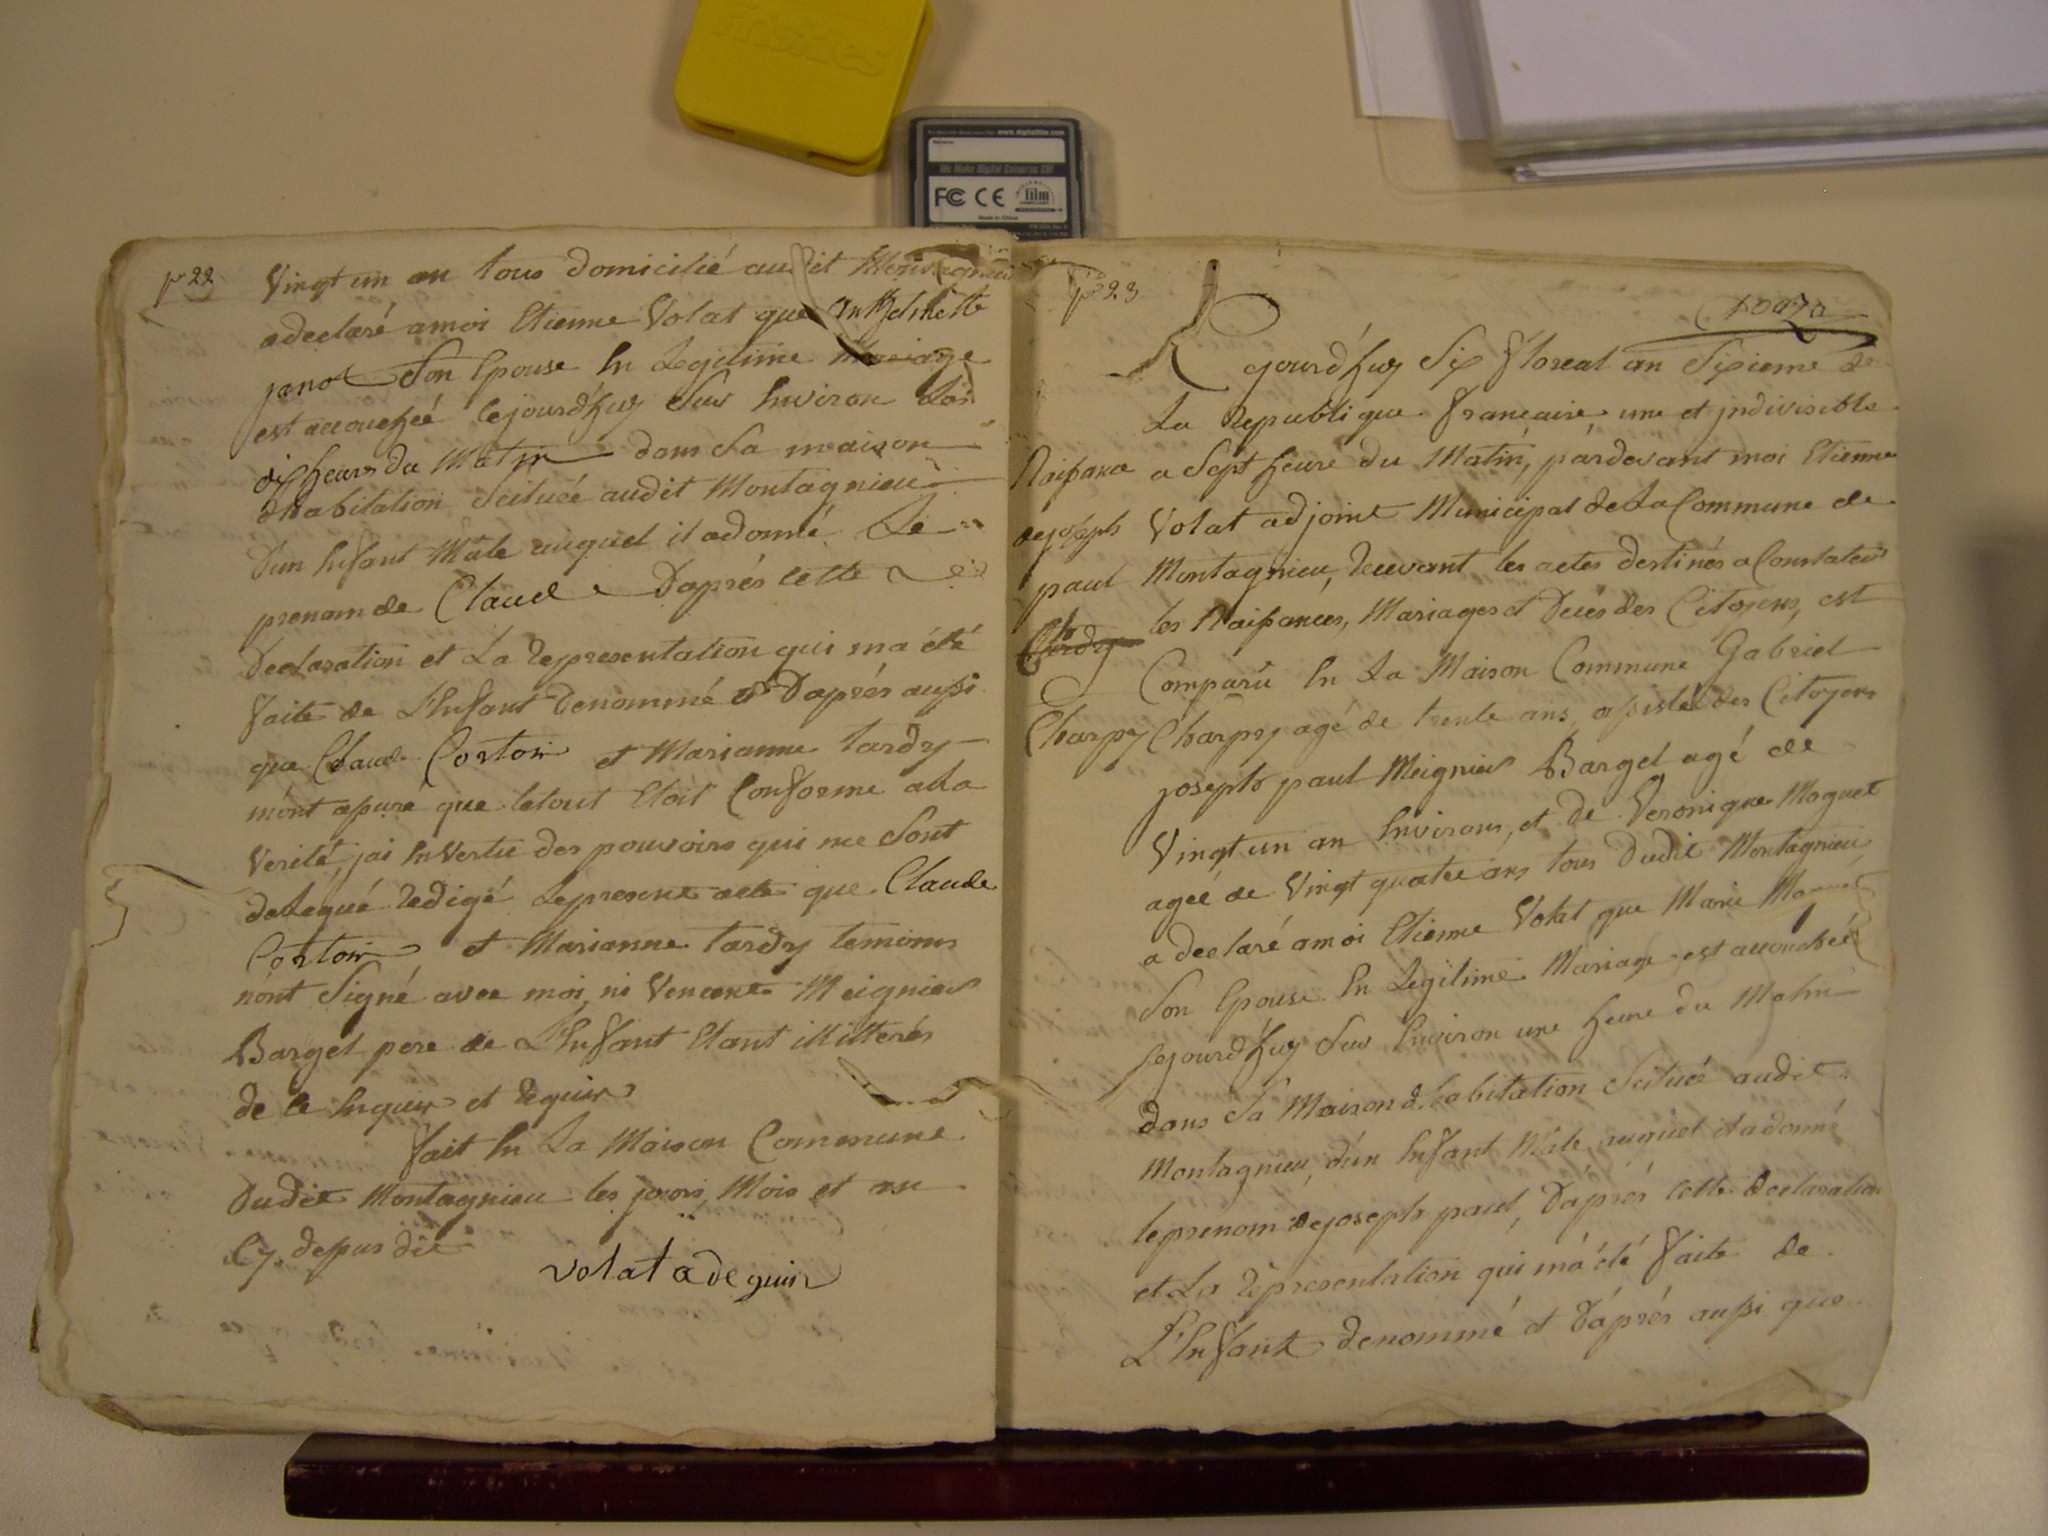 friskies
www.digitalfilm.com
We Make Digital Cameras Sit
FC CE film
Made in China
pe 22
Vingt un an tous domicilié audit Montagnieu
adeclaré amoi Etienne Volat que
janot Son Epouse En Legitime Mariage
est accouchéé cejourdhuy Sur Environ Les
dix heurs du Matin dans Sa maison
dhabitation Scituéé audit Montagnieu
Dun Enfant Mâle auquel il adonné Le
prenom de Claude D'aprés Cette
Declaration et La Representation qui ma été
faite de L'Enfant denommé et D'aprés aussi
que Claude Cortoir et Marianne tardy
mónt assuré que letout Etoit Conforme alla
Verité, jai En Vertu des pouvoirs qui me Sont
delegué Redigé Lepresent acte que Claude
Cortoir et Marianne tardy temoins
nónt Signé avec moi, ni Vencent Meignier
Bargel pere de L'Enfant Etant illiterés
de ce Enquis et Requis
fait En La Maison Commune
Dudit Montagnieu les jours, Mois et an
Cy. dessus dit
volat adeguin
pe 23
Cejourdhuy Six floreal an Sixieme de
La Republique francaise, une et jndivisible
Naissance a Sept heure du Matin, pardevant moi Etienne
dejoseph Volat adjoint Municipal de La Commune de
paul Montagnieu, Recevant les actes destinés a Constater
les Naissances, Mariages et Decés des Citoyens, est
Comparû En La Maison Commune Gabriel
Charpy Charpy agé de trente ans, assisté des Citoyens
joseph paul Meignier Bargel agé de
Vingt un an Environs, et de Veronique Moguet
ageé de Vingt quatre ans tous Dudit Montagnieu
a declaré amoi Etienne Volat que Marie
Son Epouse En Legitime Mariage est accouchéé
cejourdhuy Sur Environ une heure du Matin
dans Sa Maison d'habitation Scituéé audit
Montagnieu, d'un Enfant Mâle, auquel il adonné
leprenom dejoseph paul, D'aprés cette declaration
et La Répresentation qui má été faite de
L'Enfant denommé et D'aprés aussi que